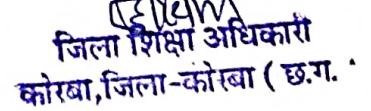 जिला शिक्षा अधिकारी
कोरबा,जिला-कोरबा ( छ.ग.